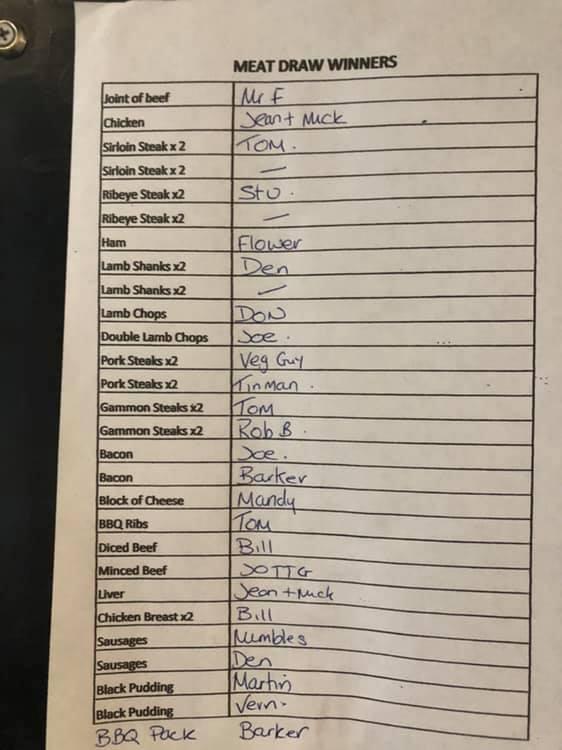 MEAT DRAW WINNERS
Joint of beef Mr F
Chicken Jean + Mick
Sirloin Steak x 2 TOM.
Sirloin Steak x 2 —
Ribeye Steak x2 Stu.
Ribeye Steak x2 —
Ham Flower
Lamb Shanks x2 Den
Lamb Shanks x2 —
Lamb Chops DON
Double Lamb Chops Joe.
Pork Steaks x2 Veg Guy
Pork Steaks x2 Tinman.
Gammon Steaks x2 TOM
Gammon Steaks x2 Rob B.
Bacon Joe.
Bacon Barker
Block of Cheese Mandy
BBQ Ribs TOM
Diced Beef Bill
Minced Beef JOTTG
Liver Jean + Mick
Chicken Breast x2 Bill
Sausages Mumbles
Sausages Den
Black Pudding Martin
Black Pudding Vern.
BBQ Pack Barker